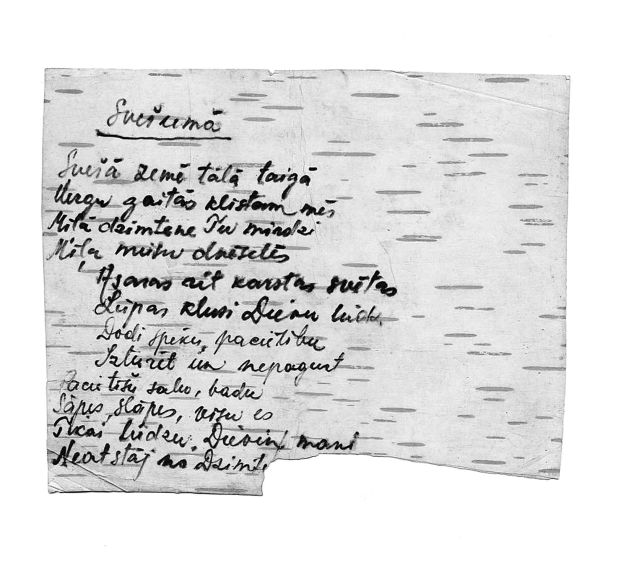 Svešumā
Svešā zemē tālā taigā
Vergu gaitās klīstam mēs
Mīļā dzimtene Tu mirdzi
Mīļa mūsu dvēselēs
Asaras rit karstas svētas
Lūpas klusi Dievu lūdz.
Dodi spēku, pacietību
Izturēt un nepagurt
Pacietīšu salu, badu
Sāpes, slāpes, visu es
Tikai lūdzu, Dieviņ, mani
Neatstāj no Dzimt